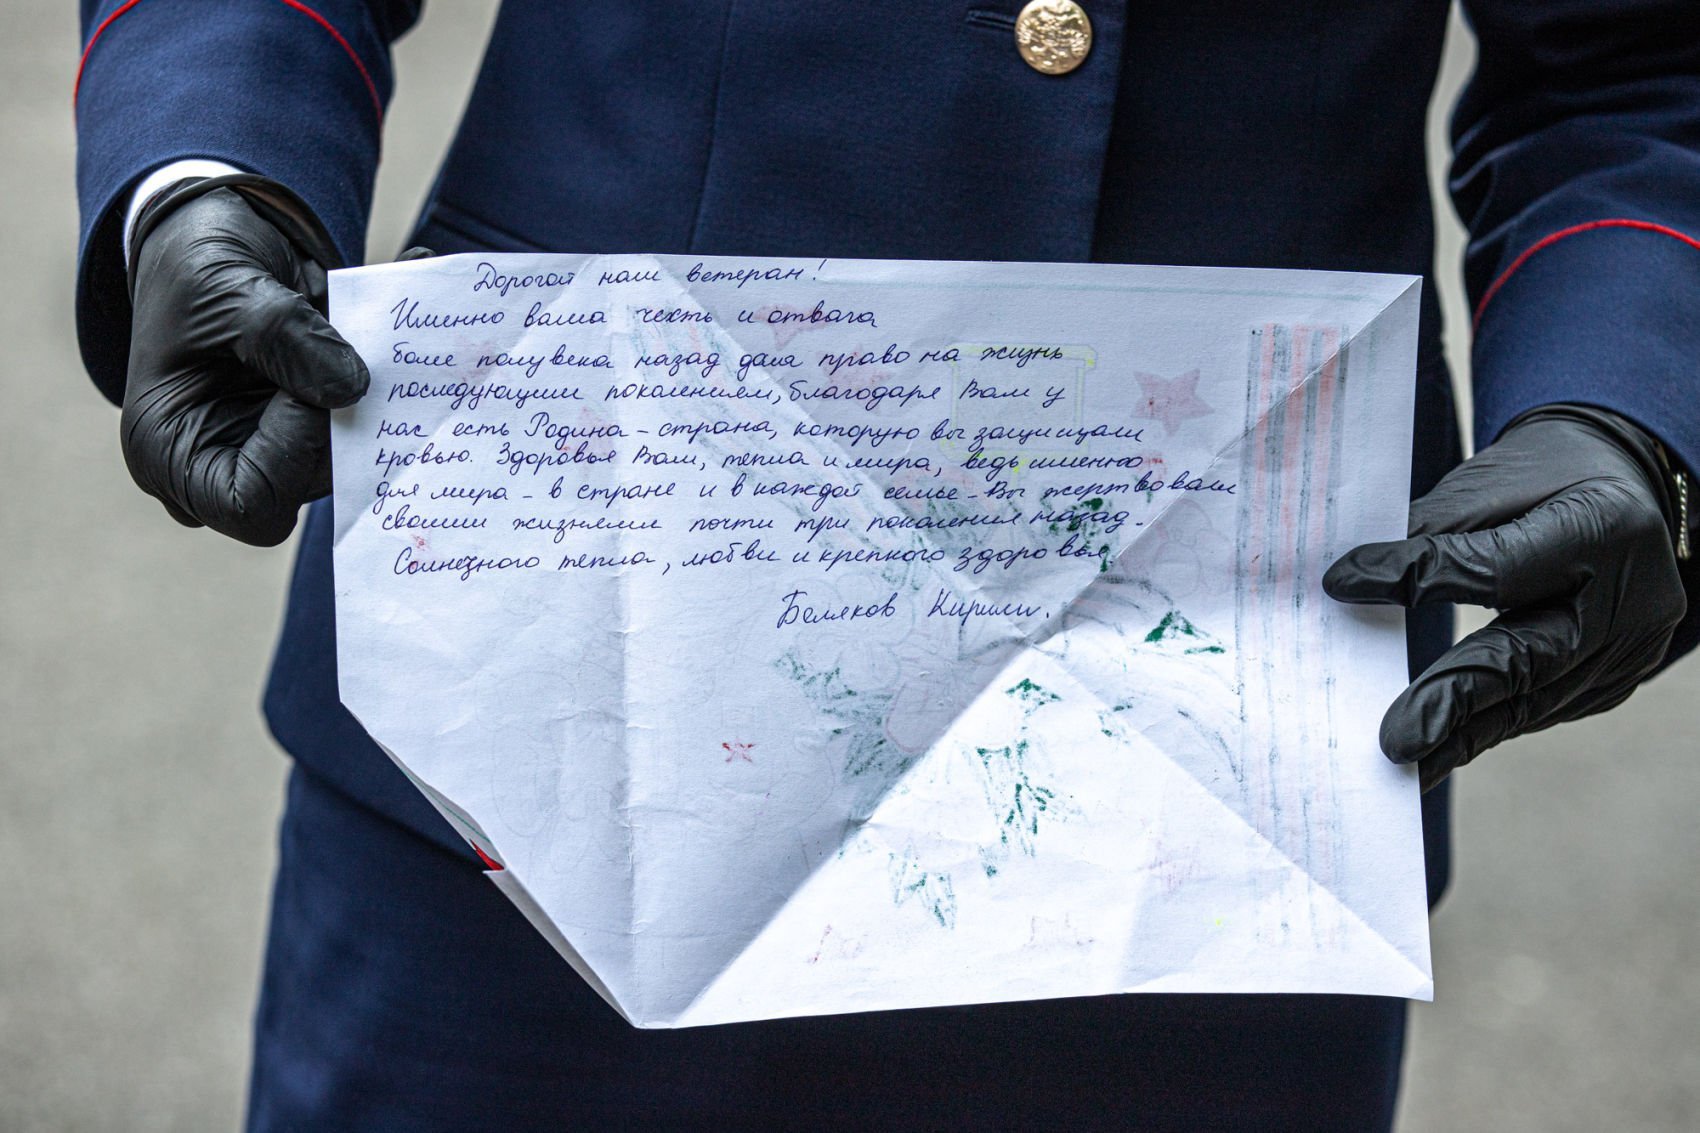 Дорогой наш ветеран!
Именно ваша честь и отвага
более полувека назад дала право на жизнь
последующим поколениям, благодаря Вам у
нас есть Родина - страна, которую вы защищали
кровью. Здоровья Вам, тепла и мира, ведь именно
для мира - в стране и в каждой семье - Вы жертвовали
своими жизнями почти три поколения назад.
Солнечного тепла, любви и крепкого здоровья.
Беляков Кирилл.